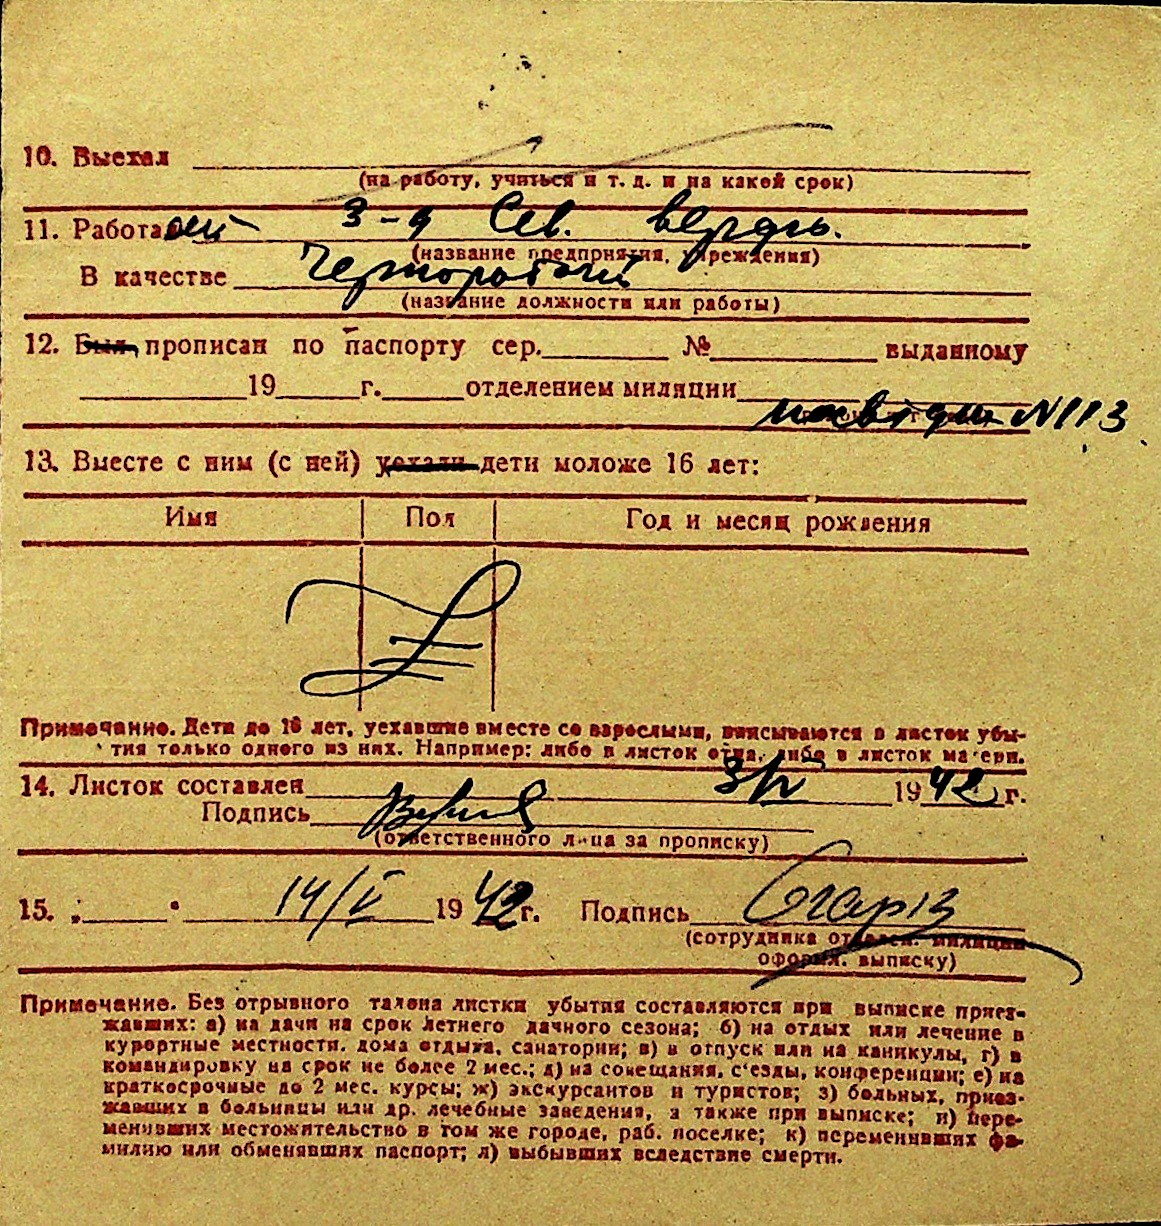 10. Выехал
(на работу, учиться и т. д. и на какой срок)
11. Работа 3-д Сев. верфь.
(название предприятия, учреждения)
В качестве Чернорабочий
(название должности или работы)
12. Был прописан по паспорту сер. № выданному
19 г. отделением милиции
№ 113
13. Вместе с ним (с ней) уехали дети моложе 16 лет:
Имя Пол Год и месяц рождения
Примечание. Дети до 16 лет, уехавшие вместе со взрослыми, вписываются в листок убы-
тия только одного из них. Например: либо в листок отца, либо в листок матери.
14. Листок составлен 3/IV 1942 г.
Подпись
(ответственного лица за прописку)
15. „ “ 14/V 1942 г. Подпись
(сотрудника отделен. милиции
оформ. выписку)
Примечание. Без отрывного талона листки убытия составляются при выписке приез-
жавших: а) на дачи на срок летнего дачного сезона; б) на отдых или лечение в
курортные местности, дома отдыха, санатории; в) в отпуск или на каникулы, г) в
командировку на срок не более 2 мес.; д) на совещания, с'езды, конференции; е) на
краткосрочные до 2 мес. курсы; ж) экскурсантов и туристов; з) больных, приез-
жавших в больницы или др. лечебные заведения, а также при выписке; и) пере-
менивших местожительство в том же городе, раб. поселке; к) переменивших фа-
милию или обменявших паспорт; л) выбывших вследствие смерти.